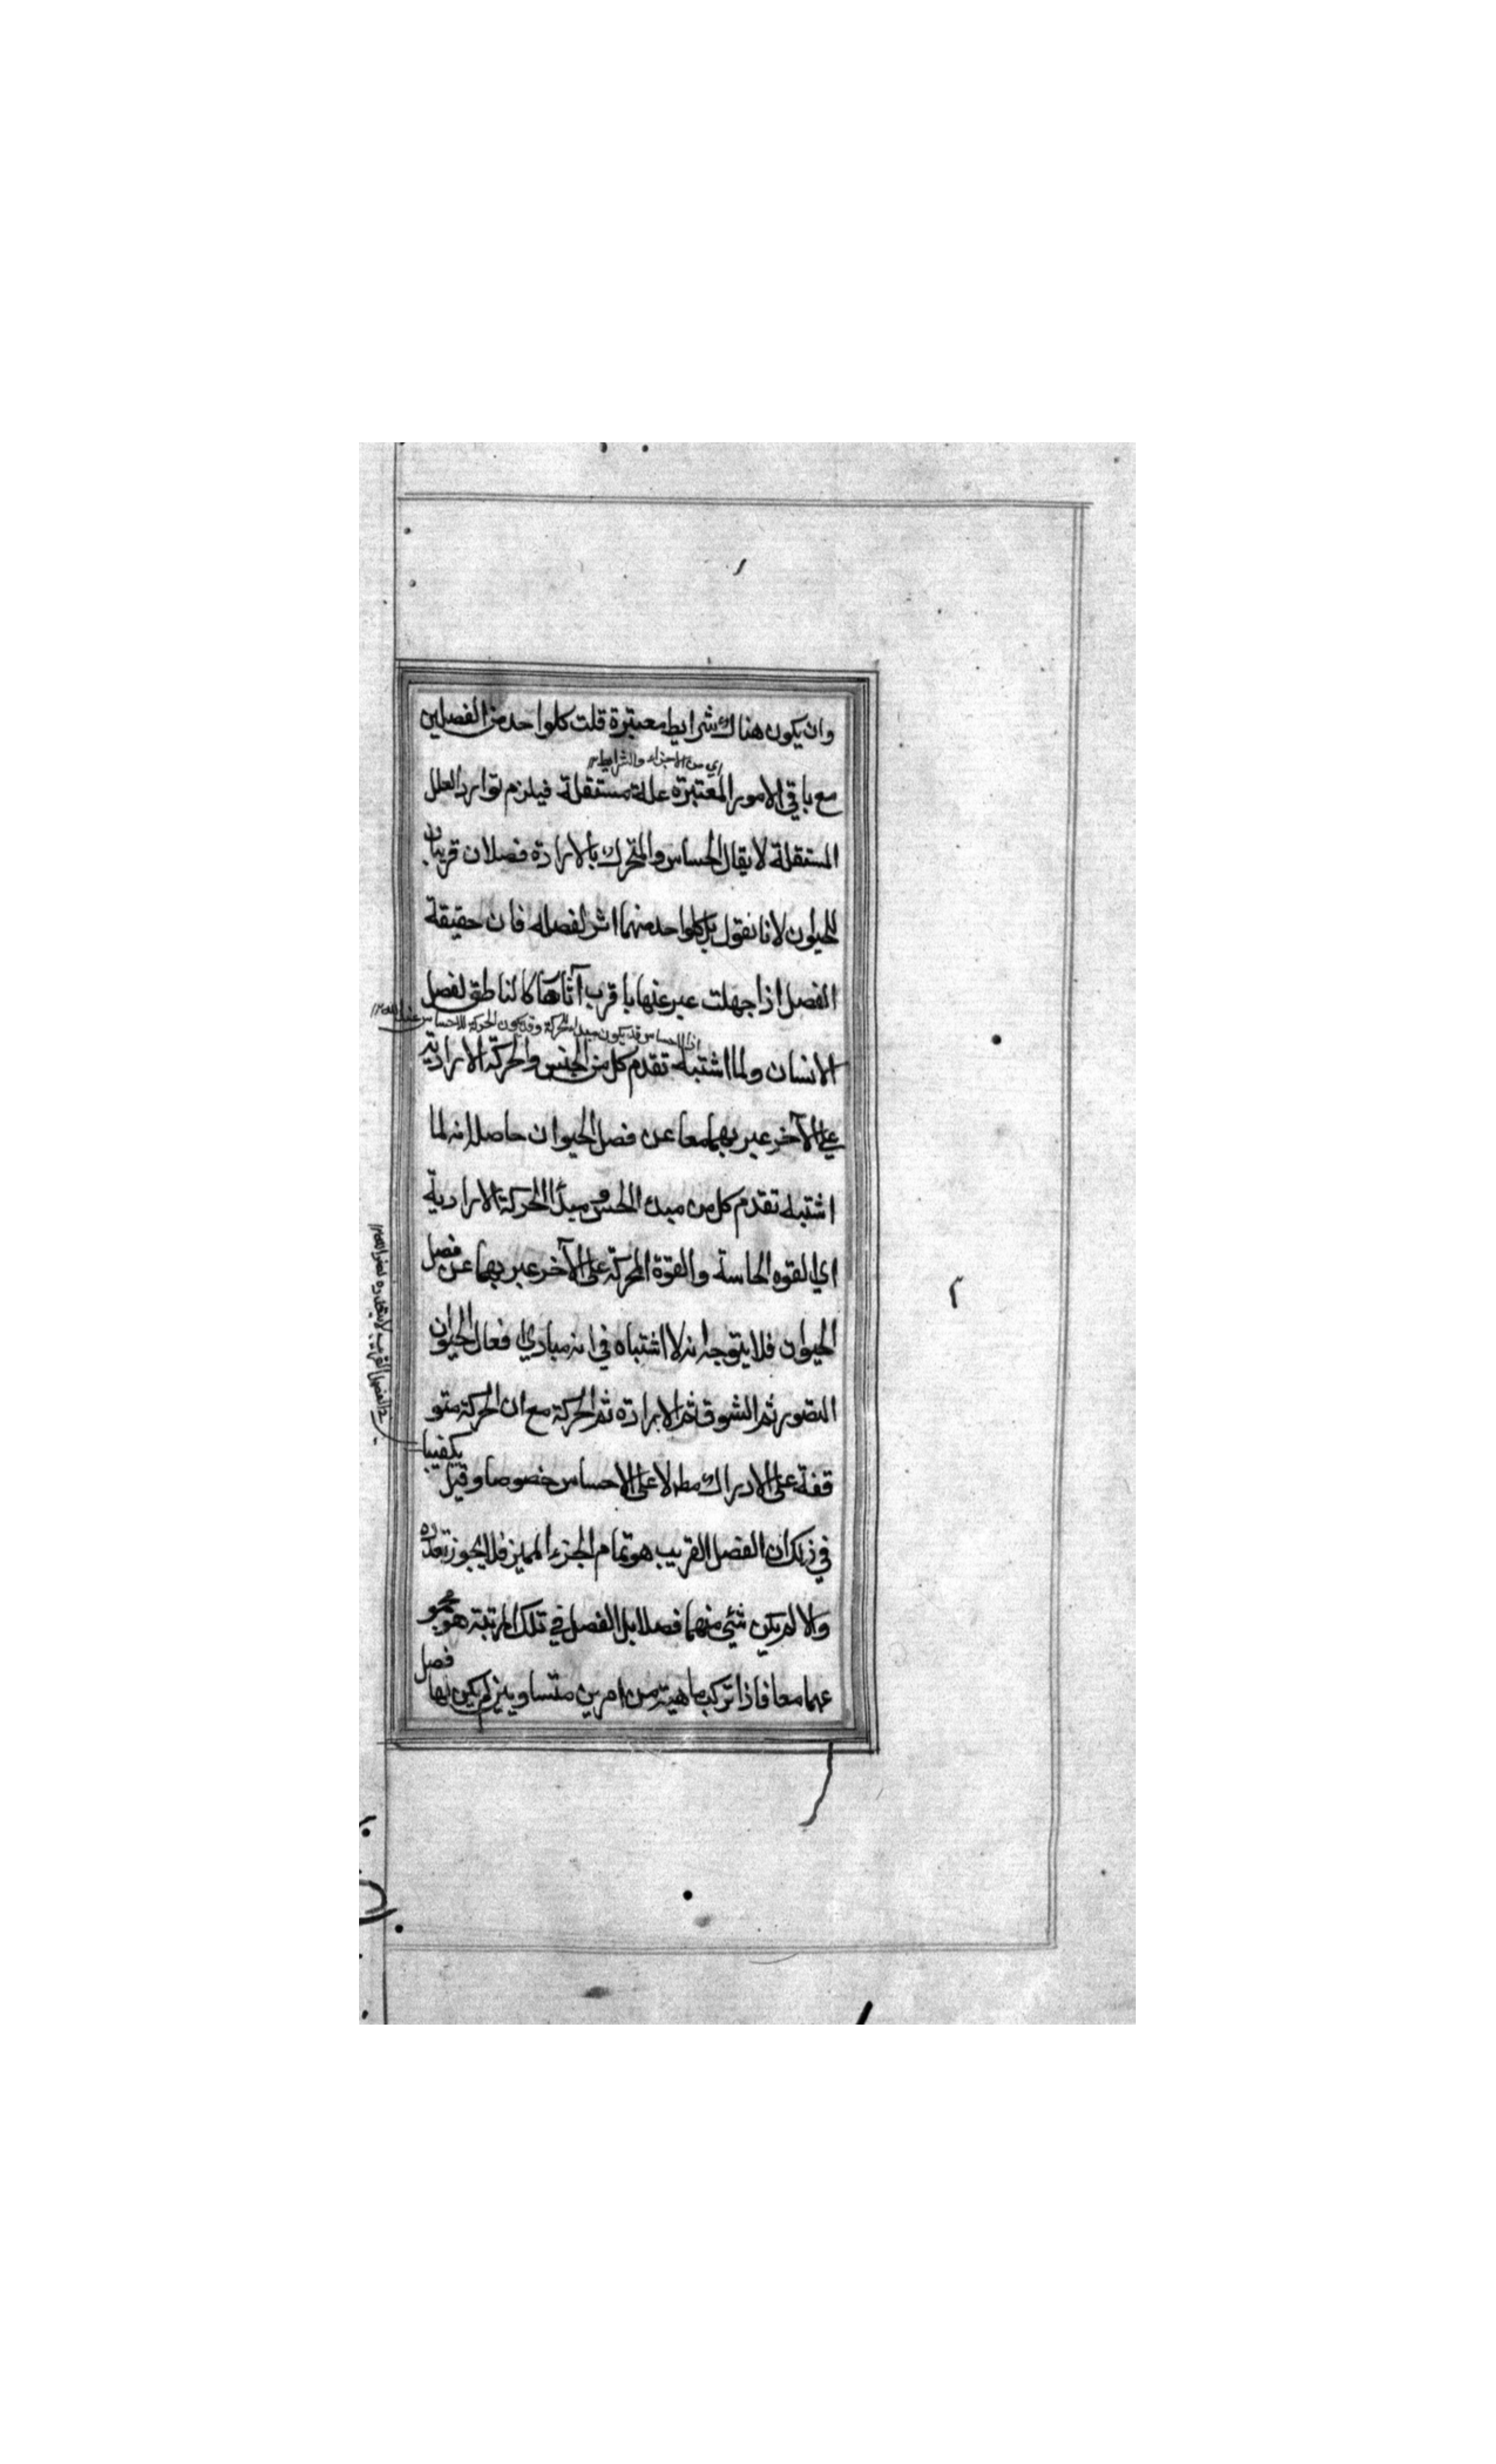 وان يكون هناك شرايط معتبرة قلت كلواحد من الفصلين
اي من الاجزاء والشرايط ١٢
مع باقي الامور المعتبرة علة مستقلة فيلزم توارد العلل
المستقلة لا يقال الحساس والمتحرك بالارادة فصلان قريبان
للحيوان لانا نقول بل كلواحد منهما اثر لفصله فان حقيقة
الفصل اذا جهلت عبر عنها باقرب آثارها كالناطق لفصل
اذ الاحساس قد يكون مبدء للحركة وقد يكون الحركة للاحساس
الانسان ولما اشتبه تقدم كل من الجنس والحركة الارادية
على الآخر عبر بهما معا عن فصل الحيوان حاصله انه لما
اشتبه تقدم كل من مبدء الحس ومبدأ الحركة الارادية
اي القوه الحاسة والقوة المحركة على الآخر عبر بهما عن فصل
الحيوان فلا يتوجه انه لا اشتباه في انه مبادي افعال الحيوان
التصور ثم الشوق ثم الارادة ثم الحركة مع ان الحركة متو
قفة على الادراك مط لا على الاحساس خصوصا وقيل يكفينا
في ذلك ان الفصل القريب هو تمام الجزء المميز فلا يجوز تعدده
والا لم يكن شئي منهما فصلا بل الفصل في تلك المرتبة هو مجمو
عهما معا فاذا تركب ماهية من امرين متساويين لم يكن لها فصل
الفصل القريب لا يتعدد